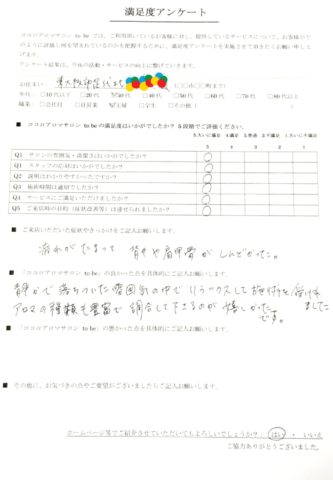 満足度アンケート
ココロアロマサロン to be では、ご利用頂いているお客様に対し、提供しているサービスについて、お客様がど
のように評価し何を望まれているのかを把握するために、満足度アンケートを実施させて頂きたくお願い申し上
げます。
アンケート結果は、今後の活動・サービスの向上に繋げていきます。
お住まい：東大阪市
(○市○町まで)
年代： 10代以下 20代 30代 40代 50代 60代 70代 80代以上
職業： 会社員 自営業 主婦 学生 その他
■ ココロアロマサロン to be の満足度はいかがでしたか？ 5段階でご評価ください。
5.大いに満足 4.満足 3.普通 2.不満 1.大いに不満
5 4 3 2 1
Q1 サロンの雰囲気・清潔さはいかがでしたか？ ○
Q1 スタッフの応対はいかがでしたか？ ○
Q2 説明はわかりやすかったですか？ ○
Q3 施術時間は適切でしたか？ ○
Q4 サービスにご満足いただけましたか？ ○
Q5 ご来店時の目的（症状改善等）は達せられましたか？ ○
■ ご来店いただいた症状やきっかけをご記入お願いします。
疲れがたまって 背中や肩甲骨がしんどかった。
■ 「ココロアロマサロン to be」の良かった点を具体的にご記入お願いします。
静かで落ちついた雰囲気の中でリラックスして施術を受けれ
アロマの種類も豊富で調合して下さるのが嬉しかった
ました
です。
■ 「ココロアロマサロン to be」の悪かった点を具体的にご記入お願いします。
■ その他に、お気づきの点やご要望がございましたらご記入お願いします。
ホームページ等でご紹介させていただいてもよろしいでしょうか？：はい ・ いいえ
ご協力ありがとうございました。